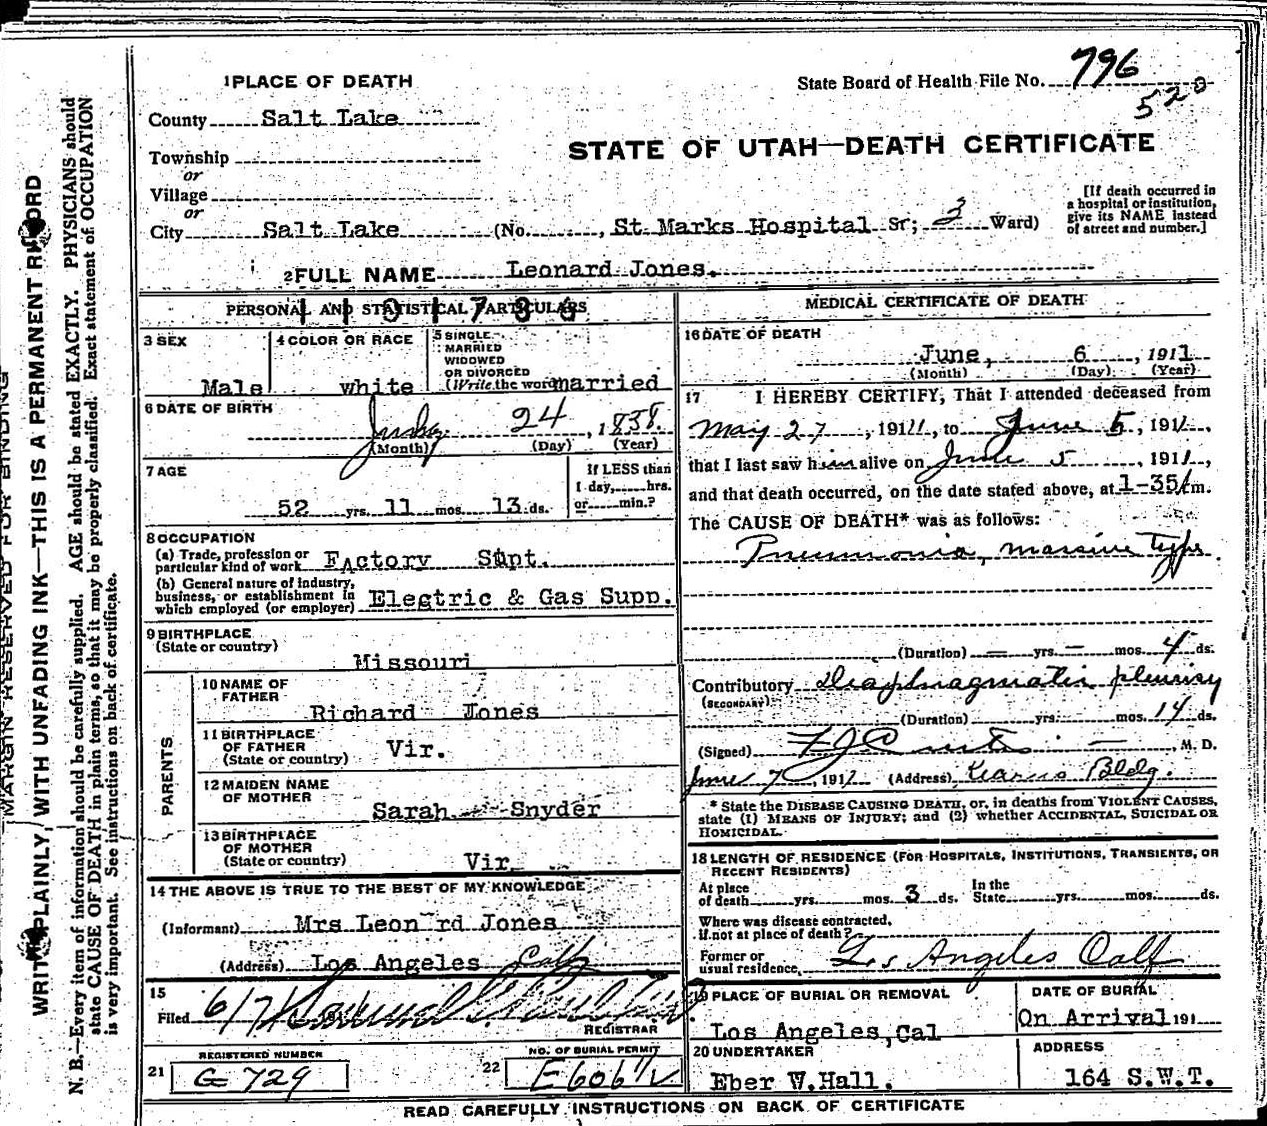 1 PLACE OF DEATH
State Board of Health File No. 796
520
County Salt Lake
STATE OF UTAH—DEATH CERTIFICATE
Township
or
Village
or
City Salt Lake (No. , St Marks Hospital St; 3 Ward)
[If death occurred in
a hospital or institution,
give its NAME instead
of street and number.]
2 FULL NAME Leonard Jones.
PERSONAL AND STATISTICAL PARTICULARS
3 SEX
Male
4 COLOR OR RACE
white
5 SINGLE,
MARRIED
WIDOWED
OR DIVORCED
(Write the word) married
6 DATE OF BIRTH
24, 1858.
(Month) (Day) (Year)
7 AGE
52 yrs. 11 mos. 13 ds.
If LESS than
1 day, hrs.
or min.?
8 OCCUPATION
(a) Trade, profession or
particular kind of work FActory Supt.
(b) General nature of industry,
business, or establishment in
which employed (or employer) Electric & Gas Supp.
9 BIRTHPLACE
(State or country)
Missouri
PARENTS
10 NAME OF
FATHER
Richard Jones
11 BIRTHPLACE
OF FATHER
(State or country)
Vir.
12 MAIDEN NAME
OF MOTHER
Sarah Snyder
13 BIRTHPLACE
OF MOTHER
(State or country)
Vir.
14 THE ABOVE IS TRUE TO THE BEST OF MY KNOWLEDGE
(Informant) Mrs Leon rd Jones
(Address) Los Angeles Calf
15
Filed 6/7 191
REGISTRAR
21 REGISTERED NUMBER
G 729
22 NO. OF BURIAL PERMIT
MEDICAL CERTIFICATE OF DEATH
16 DATE OF DEATH
June, 6, 1911
(Month) (Day) (Year)
17 I HEREBY CERTIFY, That I attended deceased from
May 27, 1911, to June 5, 191
that I last saw him alive on June 5, 1911,
and that death occurred, on the date stated above, at 1-35 m.
The CAUSE OF DEATH* was as follows:
Pneumonia, massive Type.
(Duration) — yrs. — mos. 4 ds.
Contributory Diaphragmatic pleurisy
(SECONDARY)
(Duration) yrs. mos. 14 ds.
(Signed) , M. D.
June 7, 191 (Address) Kearns Bldg.
* State the DISEASE CAUSING DEATH, or, in deaths from VIOLENT CAUSES,
state (1) MEANS OF INJURY; and (2) whether ACCIDENTAL, SUICIDAL OR
HOMICIDAL.
18 LENGTH OF RESIDENCE (FOR HOSPITALS, INSTITUTIONS, TRANSIENTS, OR
RECENT RESIDENTS)
At place
of death yrs. mos. 3 ds.
In the
State yrs. mos. ds.
Where was disease contracted,
if not at place of death?
Former or
usual residence, Los Angeles Calf
19 PLACE OF BURIAL OR REMOVAL
Los Angeles, Cal
DATE OF BURIAL
On Arrival 191
20 UNDERTAKER
Eber W. Hall.
ADDRESS
164 S.W.T.
READ CAREFULLY INSTRUCTIONS ON BACK OF CERTIFICATE
MARGIN RESERVED FOR BINDING
WRITE PLAINLY, WITH UNFADING INK—THIS IS A PERMANENT RECORD
N. B.—Every item of information should be carefully supplied. AGE should be stated EXACTLY. PHYSICIANS should
state CAUSE OF DEATH in plain terms, so that it may be properly classified. Exact statement of OCCUPATION
is very important. See instructions on back of certificate.